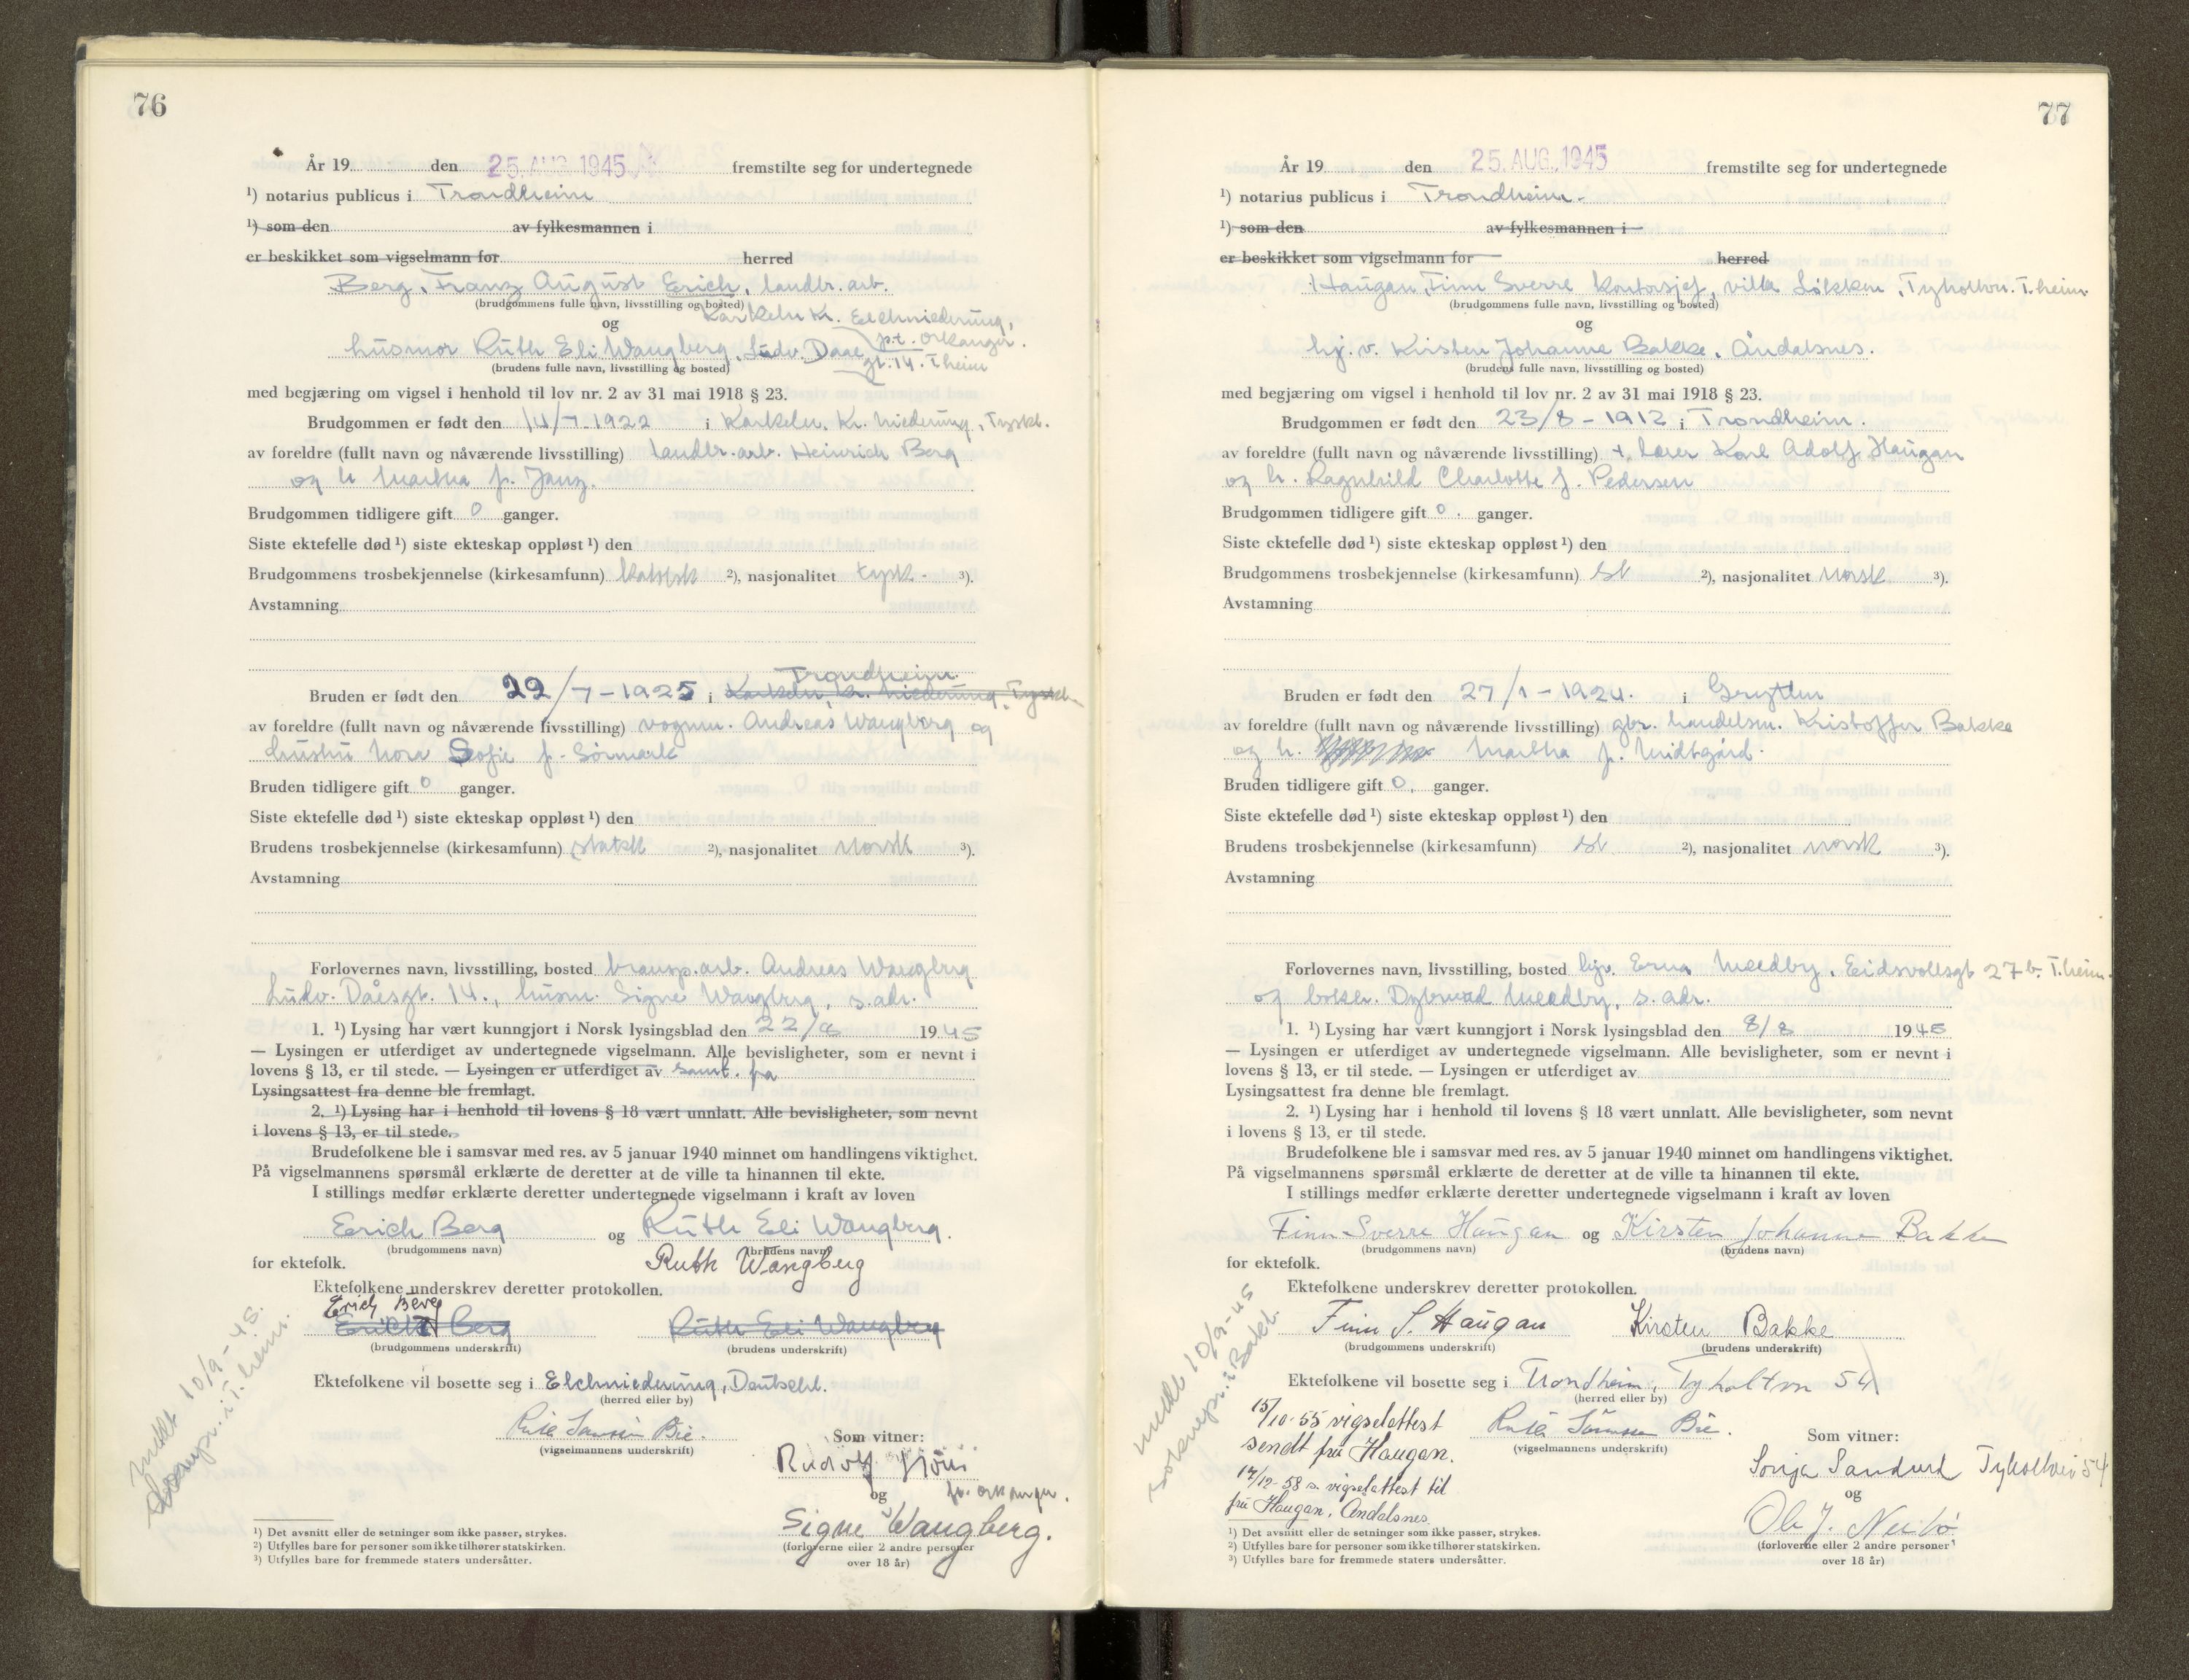 76
År 19 den 25. AUG. 1945 fremstilte seg for undertegnede
¹) notarius publicus i Trondheim
¹) som den av fylkesmannen i
er beskikket som vigselmann for herred
Berg, Franz August Erich, landbr. arb.
(brudgommens fulle navn, livsstilling og bosted)
Karkeln Kr. Elchniederung,
og
p.t. Orkanger.
husmor Ruth Eli Wangberg, Ludv. Daae
gt. 14. T.heim
(brudens fulle navn, livsstilling og bosted)
med begjæring om vigsel i henhold til lov nr. 2 av 31 mai 1918 § 23.
Brudgommen er født den 14/7-1922 i Karkeln, Kr. Niederung, Tyskl.
av foreldre (fullt navn og nåværende livsstilling) landbr. arb. Heinrich Berg
og h Martha f. Janz.
Brudgommen tidligere gift 0 ganger.
Siste ektefelle død ¹) siste ekteskap oppløst ¹) den
Brudgommens trosbekjennelse (kirkesamfunn) katolsk ²), nasjonalitet tysk. ³).
Avstamning
Trondheim
Bruden er født den 22/7-1925 i Karkeln, Kr. Niederung, Tyskl.
av foreldre (fullt navn og nåværende livsstilling) vognm. Andreas Wangberg og
hustru Nora Sofie f. Sørmark
Bruden tidligere gift 0 ganger.
Siste ektefelle død ¹) siste ekteskap oppløst ¹) den
Brudens trosbekjennelse (kirkesamfunn) statsk ²), nasjonalitet norsk ³).
Avstamning
Forlovernes navn, livsstilling, bosted transp.arb. Andreas Wangberg
Ludv. Dåesgt. 14., husm. Signe Wangberg, s. adr.
1. ¹) Lysing har vært kunngjort i Norsk lysingsblad den 22/8 1945
— Lysingen er utferdiget av undertegnede vigselmann. Alle bevisligheter, som er nevnt i
lovens § 13, er til stede. — Lysingen er utferdiget av samt. fra
Lysingsattest fra denne ble fremlagt.
2. ¹) Lysing har i henhold til lovens § 18 vært unnlatt. Alle bevisligheter, som nevnt
i lovens § 13, er til stede.
Brudefolkene ble i samsvar med res. av 5 januar 1940 minnet om handlingens viktighet.
På vigselmannens spørsmål erklærte de deretter at de ville ta hinannen til ekte.
I stillings medfør erklærte deretter undertegnede vigselmann i kraft av loven
Erich Berg og Ruth Eli Wangberg.
(brudgommens navn) (brudens navn)
for ektefolk. Ruth Wangberg
Ektefolkene underskrev deretter protokollen.
Erich Berg
Erich Berg Ruth Eli Wangberg
(brudgommens underskrift) (brudens underskrift)
Ektefolkene vil bosette seg i Elchniederung, Deutschl.
(herred eller by)
(vigselmannens underskrift)
Som vitner:
Rudolf
og
Signe Wangberg.
(forloverne eller 2 andre personer
over 18 år)
10/9-45.
i T.heim.
¹) Det avsnitt eller de setninger som ikke passer, strykes.
²) Utfylles bare for personer som ikke tilhører statskirken.
³) Utfylles bare for fremmede staters undersåtter.
77
År 19 den 25. AUG. 1945 fremstilte seg for undertegnede
¹) notarius publicus i Trondheim.
¹) som den av fylkesmannen i
er beskikket som vigselmann for herred
Haugan, Finn Sverre kontorsjef, villa Løkken, Tyholtvn. T.heim.
(brudgommens fulle navn, livsstilling og bosted)
og
hj. v. Kirsten Johanne Bakke, Åndalsnes.
(brudens fulle navn, livsstilling og bosted)
med begjæring om vigsel i henhold til lov nr. 2 av 31 mai 1918 § 23.
Brudgommen er født den 23/8-1912 i Trondheim.
av foreldre (fullt navn og nåværende livsstilling) +, lærer Karl Adolf Haugan
og h. Ragnhild Charlotte f. Pedersen
Brudgommen tidligere gift 0. ganger.
Siste ektefelle død ¹) siste ekteskap oppløst ¹) den
Brudgommens trosbekjennelse (kirkesamfunn) st ²), nasjonalitet norsk ³).
Avstamning
Bruden er født den 27/1-1924. i Grytten
av foreldre (fullt navn og nåværende livsstilling) gbr. handelsm. Kristoffer Bakke
og h. Martha f. Midtgård.
Bruden tidligere gift 0, ganger.
Siste ektefelle død ¹) siste ekteskap oppløst ¹) den
Brudens trosbekjennelse (kirkesamfunn) st ²), nasjonalitet norsk ³).
Avstamning
Forlovernes navn, livsstilling, bosted hjv. Erna Meedby, Eidsvollsgt 27 b. T.heim.
og Meedby, s. adr.
1. ¹) Lysing har vært kunngjort i Norsk lysingsblad den 8/8 1945
— Lysingen er utferdiget av undertegnede vigselmann. Alle bevisligheter, som er nevnt i
lovens § 13, er til stede. — Lysingen er utferdiget av
Lysingsattest fra denne ble fremlagt.
2. ¹) Lysing har i henhold til lovens § 18 vært unnlatt. Alle bevisligheter, som nevnt
i lovens § 13, er til stede.
Brudefolkene ble i samsvar med res. av 5 januar 1940 minnet om handlingens viktighet.
På vigselmannens spørsmål erklærte de deretter at de ville ta hinannen til ekte.
I stillings medfør erklærte deretter undertegnede vigselmann i kraft av loven
Finn Sverre Haugan og Kirsten Johanne Bakke
(brudgommens navn) (brudens navn)
for ektefolk.
Ektefolkene underskrev deretter protokollen.
Finn S. Haugan Kirsten Bakke
(brudgommens underskrift) (brudens underskrift)
Ektefolkene vil bosette seg i Trondheim, Tyholtvn 54
(herred eller by)
15/10-55 vigselattest
sendt fru Haugan.
17/12-58 s. vigselattest til
fru Haugan, Åndalsnes.
(vigselmannens underskrift)
Som vitner:
Sonja Tyholtvei 54
og
Ole J.
(forloverne eller 2 andre personer
over 18 år)
10/9-45
¹) Det avsnitt eller de setninger som ikke passer, strykes.
²) Utfylles bare for personer som ikke tilhører statskirken.
³) Utfylles bare for fremmede staters undersåtter.